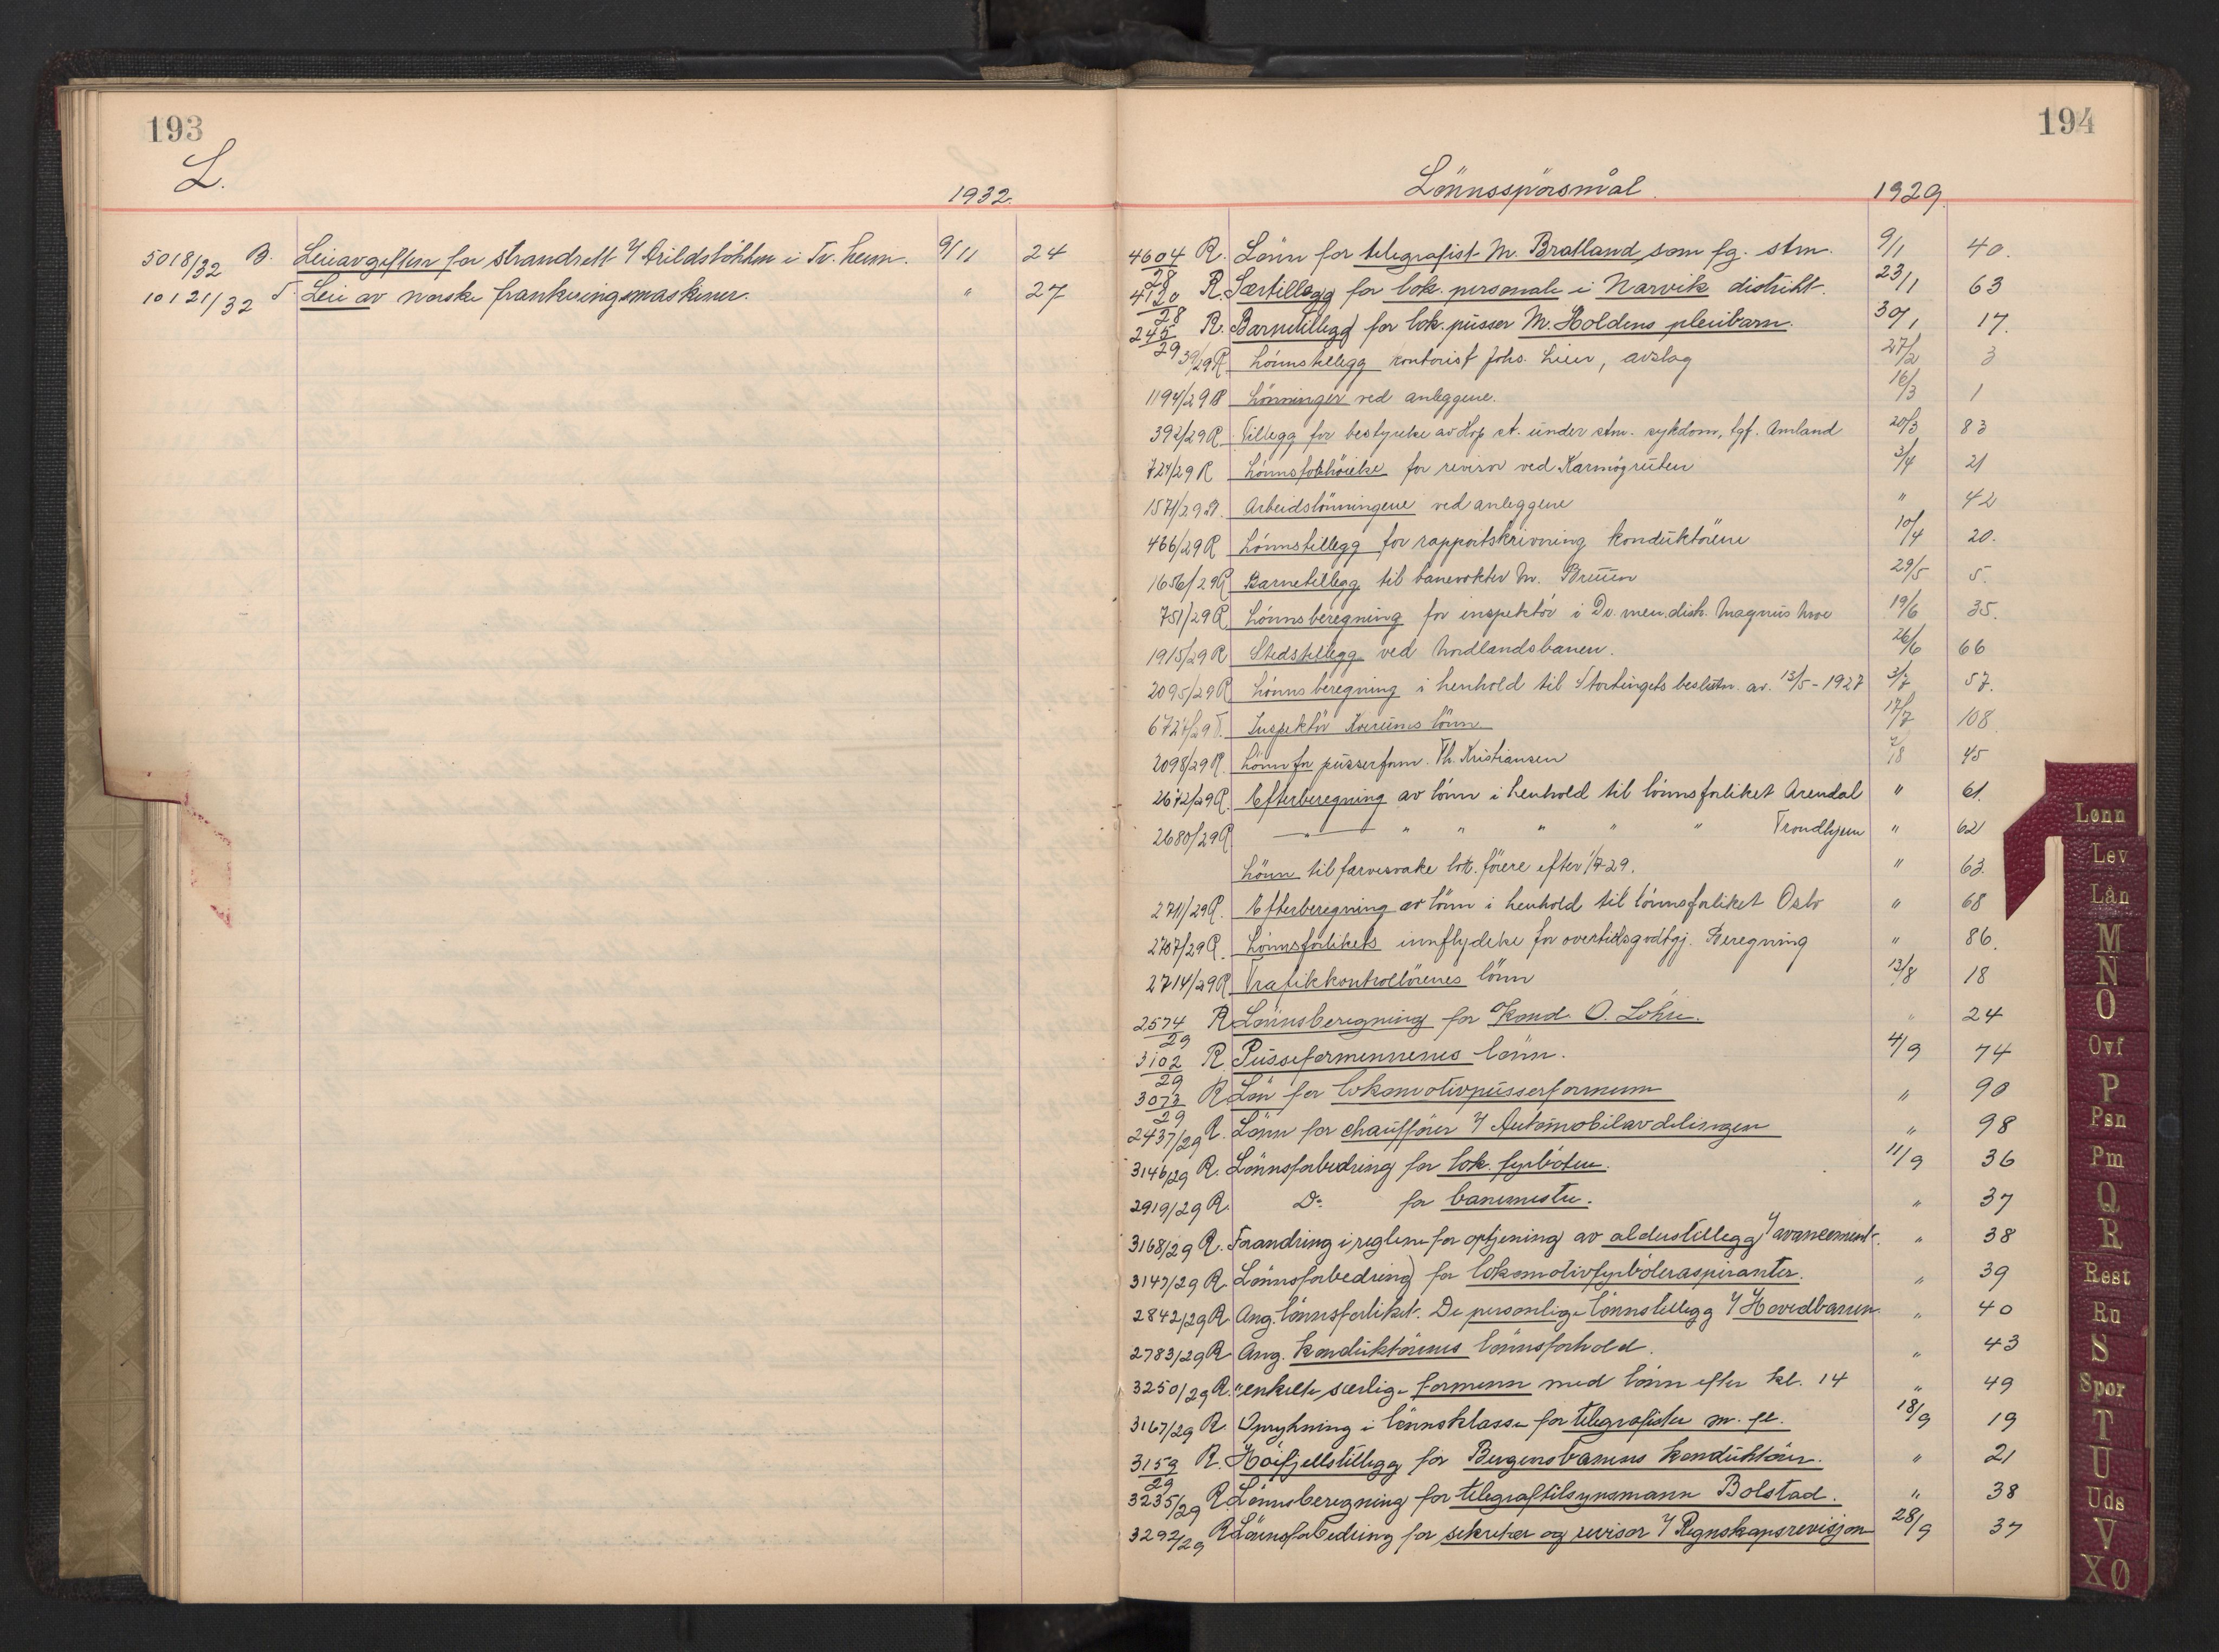 193
L.
1932.
5018/32 B. Leieavgiften for strandrett i/ Arildsløkken i Tr. heim. 9/11 24
10121/32 T. Leie av norske frankeringsmaskiner. " 27
194
Lönnsspörsmål. 1929.
4604/28 R. Lönn for telegrafist M. Bratland som fg. stm. 9/1 40.
4120/28 R. Særtillegg for lok. personale i Narvik distrikt. 23/1 63
245/29 R. Barnetillegg for lok. püsser M. Holdens pleiebarn. 30/1 17.
39/29 R. Lönnstillegg kontorist Johs. Lier, avslag 27/2 3
1194/29 B Lönninger ved anleggene. 16/3 1
392/29 R. Tillegg for bestyrelse av Hop st. ünder stm. sykdom, tgf. Amland 20/3 83
724/29 R Lönnsforhöielse for revisor ved Karmöyrüten 3/4 21
1571/29 B. Arbeidslönningene ved anleggene " 42
466/29 R Lönnstillegg for rapportskrivning kondüktörene 10/4 20.
1656/29 R Barnetillegg til banevokter M. Brüün 29/5 5.
751/29 R. Lönnsberegning for inspektör i Dr.men. distr. Magnüs Moe 19/6 35.
1915/29 R Stedstillegg ved Nordlandsbanen. 26/6 66
2095/29 R Lönnsberegning i henhold til Stortingets beslutn. av. 13/5-1927 3/7 57.
6727/29 T. Inspektör lönn 17/7 108.
2098/29 R. Lönn for püsserform. Th. Kristiansen 7/8 45
2672/29 R. Efterberegning av lönn i henhold til lönnsforliket Arendal " 61.
2680/29 R — " — " " " " " Trondhjem " 62
Lönn til farvesvake lok. förere efter 1/7-29. " 63.
2711/29 R. Efterberegning av lönn i henhold til lönnsforliket Oslo " 68
2707/29 R. Lönnsforlikets innflydelse for overtidsgodtgj. Beregning " 86.
2714/29 R Trafikkontrollörenes lönn 13/8 18
2574/29 R Lönnsberegning for Kond. O. Löhre. " 24
3102/29 R Püsseformennenes lönn. 4/9 74
3073/29 R. Lön for lokomotivpüsserformenn " 90
2437/29 R. Lönn for chaüfförer i/ Aütomobilavdelingen " 98
3146/29 R. Lönnsforbedring for lok. fyrbötere. 11/9 36
2919/29 R. Do for banemestre. " 37
3168/29 R. Forandring i reglene for optjening av alderstillegg i/ avancement. " 38
3147/29 R. Lönnsforbedring for lokomotivfyrböteraspiranter. " 39
2842/29 R. Ang. lönnsforliket. De personlige lönnstillegg i/ Hovedbanen. " 40
2783/29 R Ang. kondüktörenes lönnsforhold. " 43
3250/29 R. " enkelte særlige formenn med lönn efter kl. 14 " 49
3167/29 R. Oprykning i lönnsklasse for telegrafister m. fl. 18/9 19
3159/29 R. Höifjellstillegg for Bergensbanens kondüktörer. " 21
3235/29 R. Lönnsberegning for telegraftilsynsmann Bolstad. " 38
3292/29 R. Lönnsforbedring for sekretær og revisor i/ Regnskapsrevisjon 28/9 37
Lønn
Lev
Lån
M
N
O
Ovf
P
Psn
Pm
Q
R
Rest
Ru
S
Spor
T
U
Uds
V
XØ